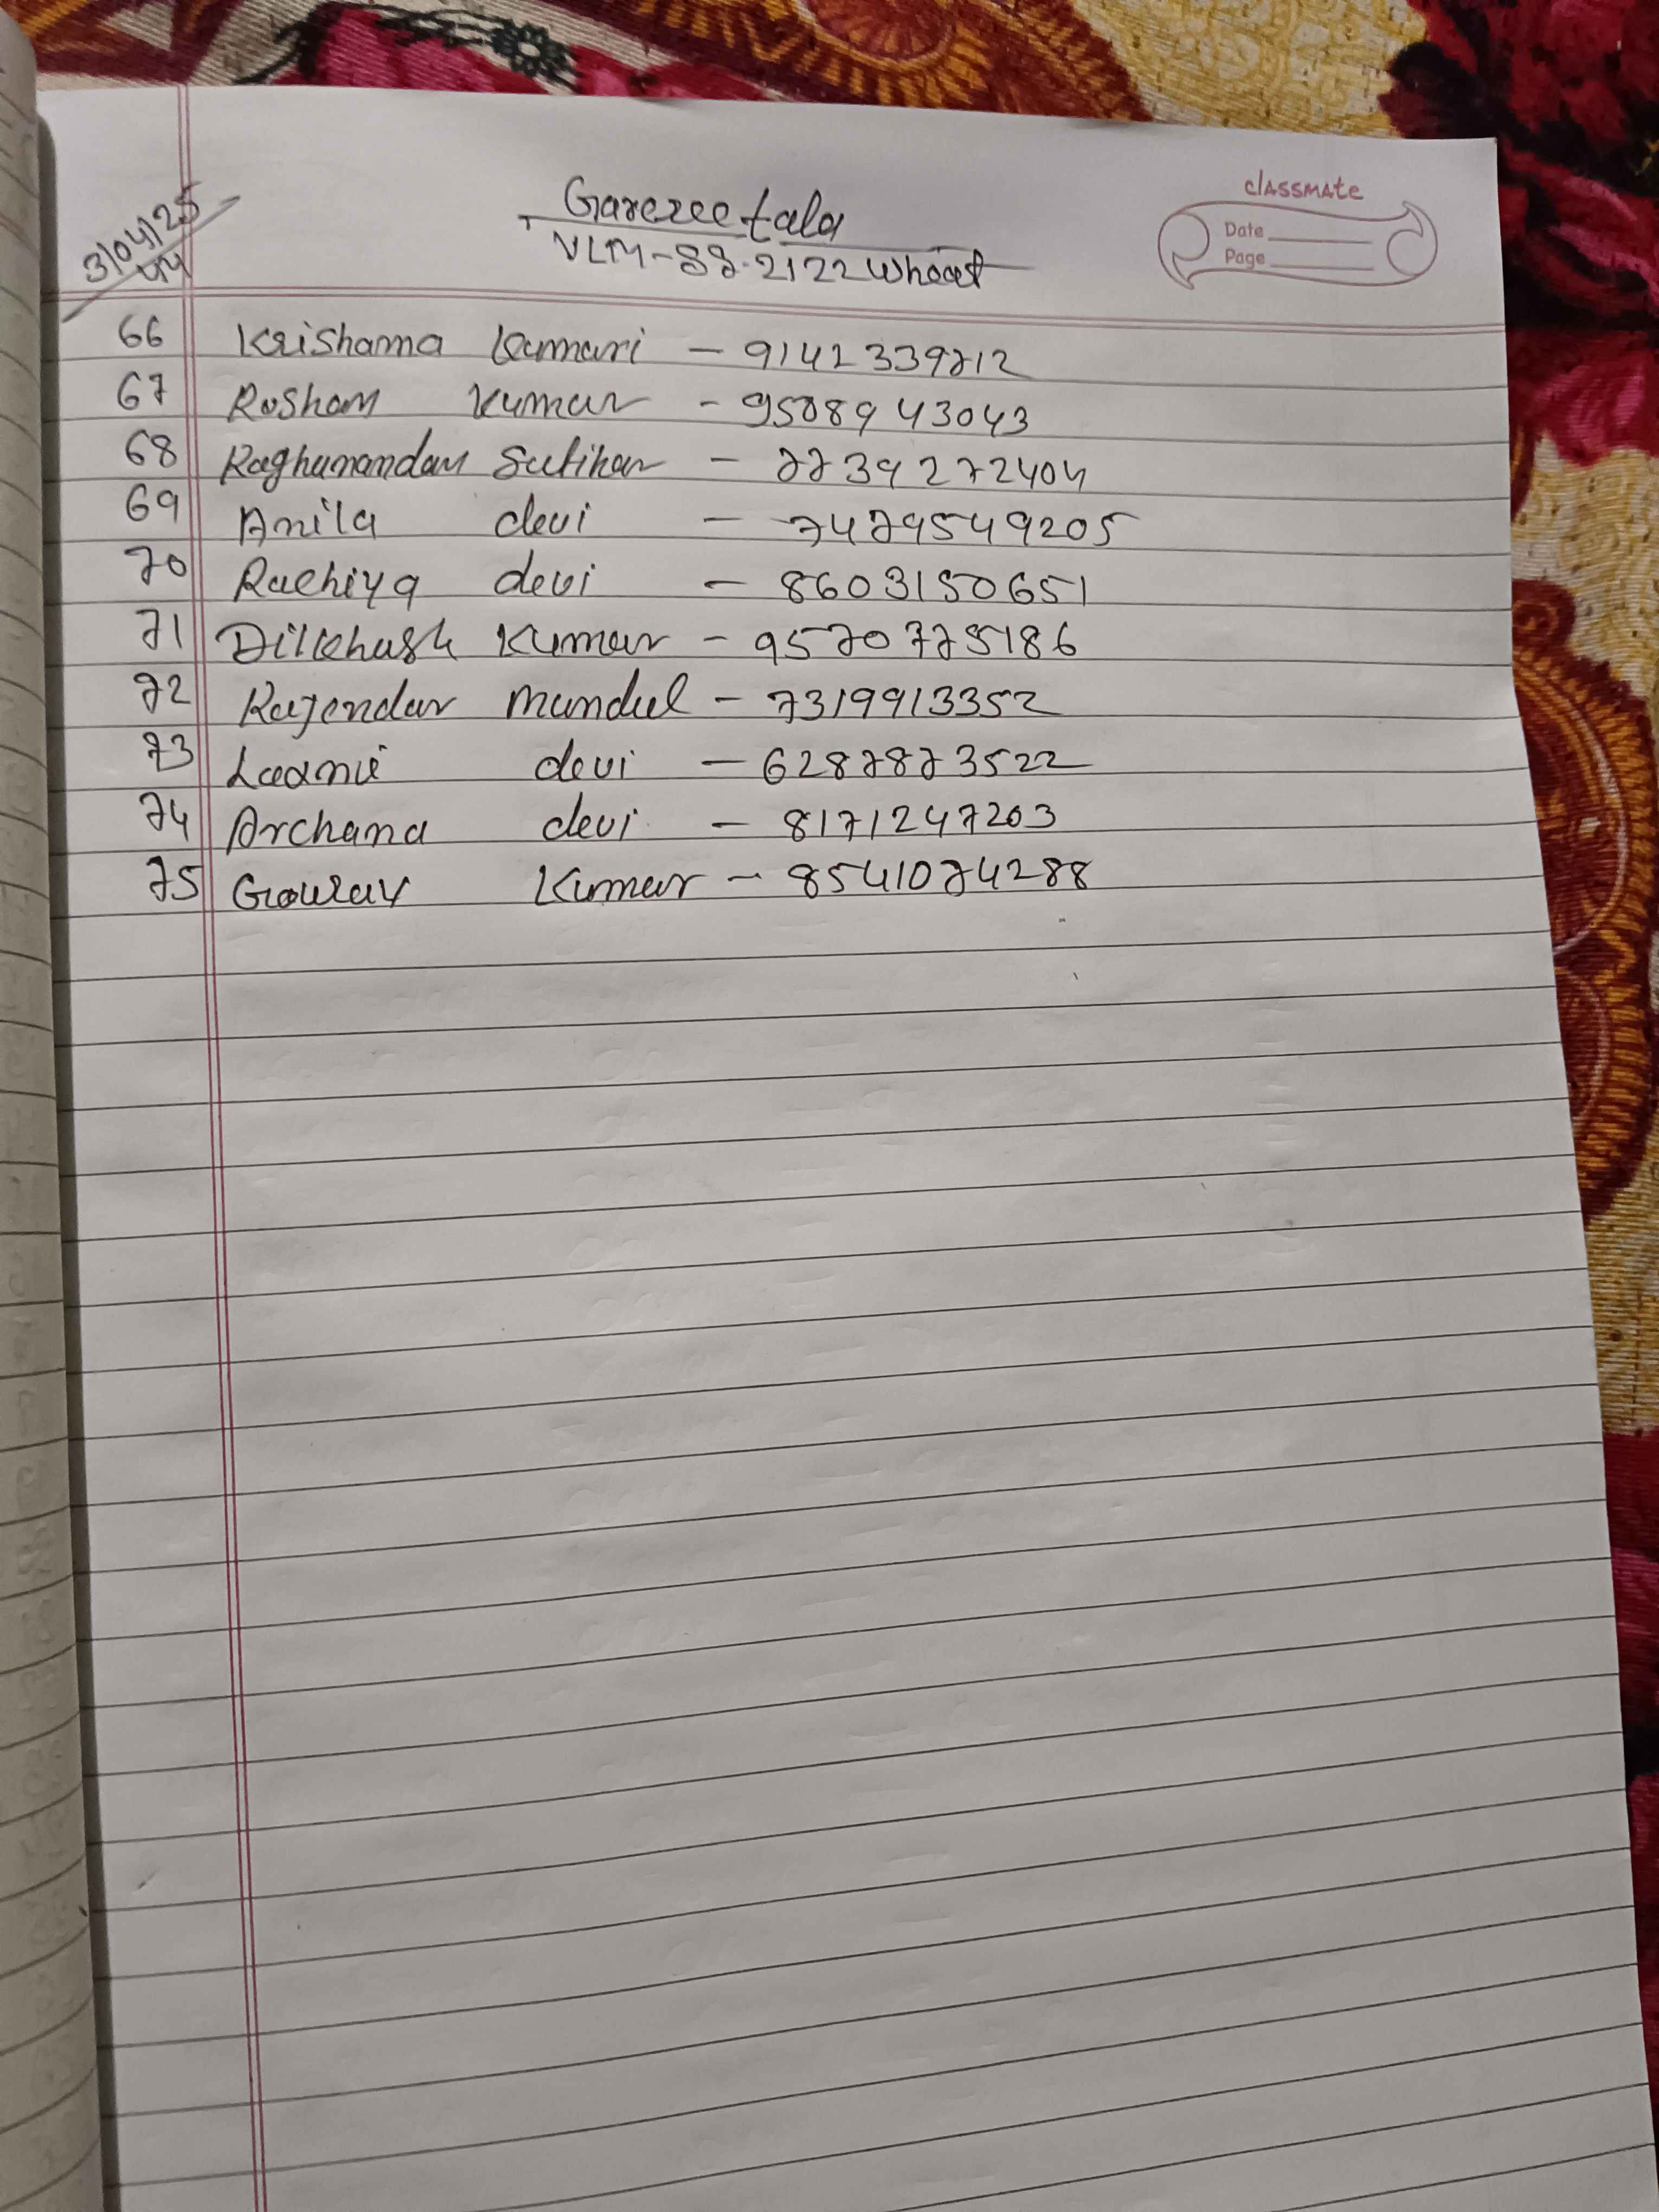 classmate
Date
Page
3/04/25
Garezee tala
VLM-SS-2122 Wheat
66 Krishama Kumari - 9142339712
67 Roshan Kumar - 9508943043
68 Raghunandan Sutihar - 7739272404
69 Anila devi - 7479549205
70 Rachiya devi - 8603150651
71 Dilkhush Kumar - 9570775186
72 Rajendar mandul - 7319913352
73 Laxmi devi - 6287873522
74 Archana devi - 8171247203
75 Gourav Kumar - 8541074288